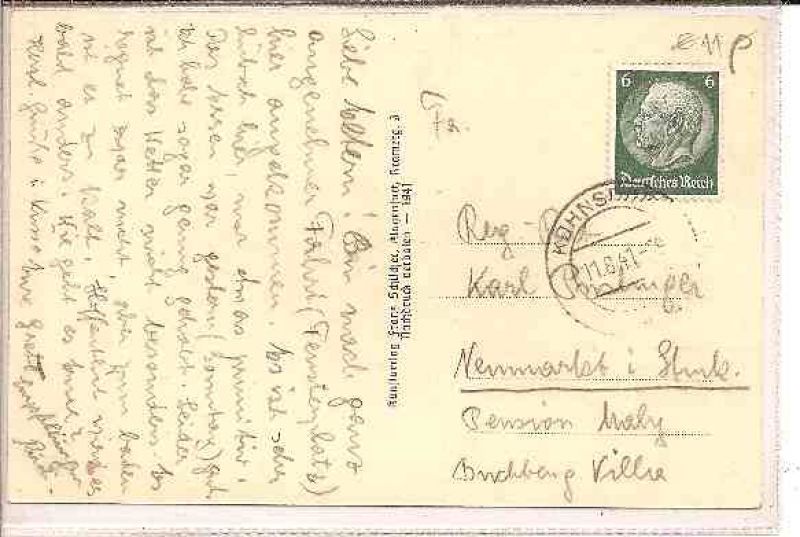 Liebe Eltern! Bin nach ganz
angenehmer Fahrt (Fensterplatz)
hier angekommen. Es ist sehr
hübsch hier, nur etwas primitiv.
Das Essen war gestern (Sonntag) gut.
Ich habe sogar genug gehabt. Leider
ist das Wetter nicht besonders. Es
regnet zwar nicht, aber zum baden
ist es zu kalt. Hoffentlich wird es
bald anders. Wie geht es
Herzl. Grüße u. Küsse Eure Grete
Kunstverlag Franz Schilcher, Klagenfurt,
Nachdruck verboten — 1941
6 6
Deutsches Reich
KÜHNS
11.6.41
€ 11
Reg-
Karl
Neumarkt i Stmk.
Pension Maly
Buchberg Villa